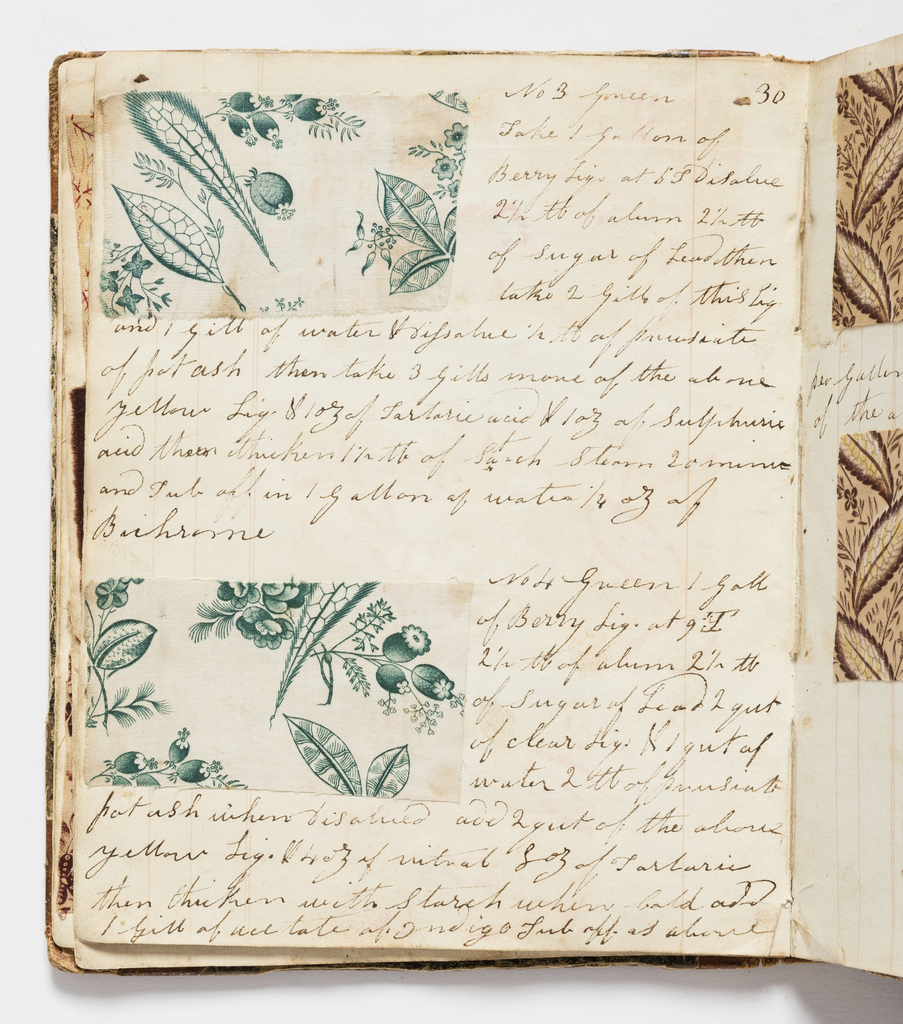 30
No 3 Green
Take 1 Gallon of
Berry Liq. at 5 T Disolve
2 1/2 tb of alum 2 1/2 tb
of Sugar of Lead then
take 2 Gills of this Liq
and 1 Gill of water & Dissolve 1/2 tb of prusiate
of potash then take 3 Gills more of the above
yellow Liq. & 1 oz of Tartaric acid & 1 oz of Sulphuric
acid then thicken 1 1/2 tb of Starch Steam 20 mins
and Tub off in 1 Gallon of water 1/4 oz of
Bichrome
No 4 Green 1 Gall
of Berry Liq. at 9 T
2 1/2 tb of alum 2 1/2 tb
of Sugar of Lead 2 qut
of clear Liq. & 1 qut of
water 2 tb of prusiate
potash when disolved add 2 qut of the above
yellow Liq. & 4 oz of 8 oz of Tartaric
then thicken with Starch when Cold add
1 Gill of acetate of Indigo Tub off as above
per Gallon
of the a